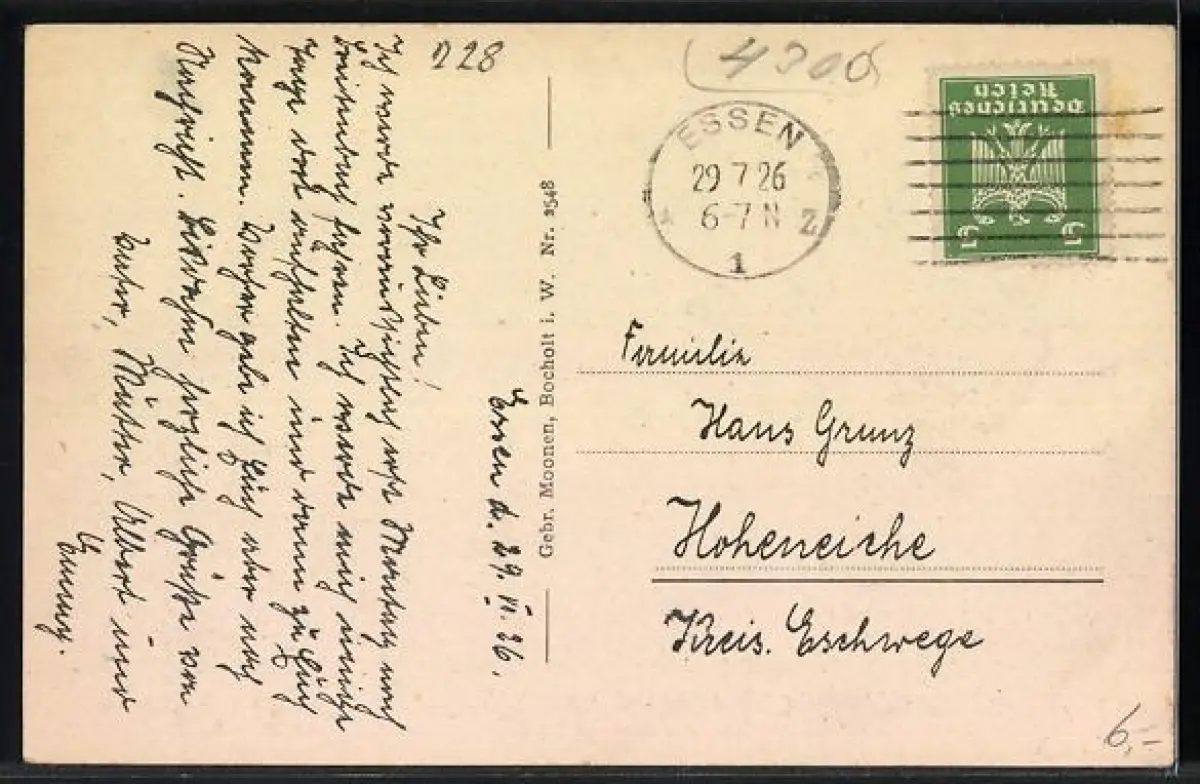 Essen d. 29. VII. 26.
Ihr Lieben!
Ich werde voraussichtlich erst Montag nach
Breitenbach fahren. Ich werde mich einige
Tage dort aufhalten und dann zu Euch
kommen. Vorher gebe ich Euch aber noch
Nachricht. Bis dahin herzliche Grüße von
Vater, Mutter, Albert und
Emmy.
Gebr. Moonen, Bocholt i. W. Nr. 2548
ESSEN
29 7 26
6-7 N
Z
1
Deutsches
Reich
5 5
Familie
Hans Grunz
Hoheneiche
Kreis. Eschwege
6,–